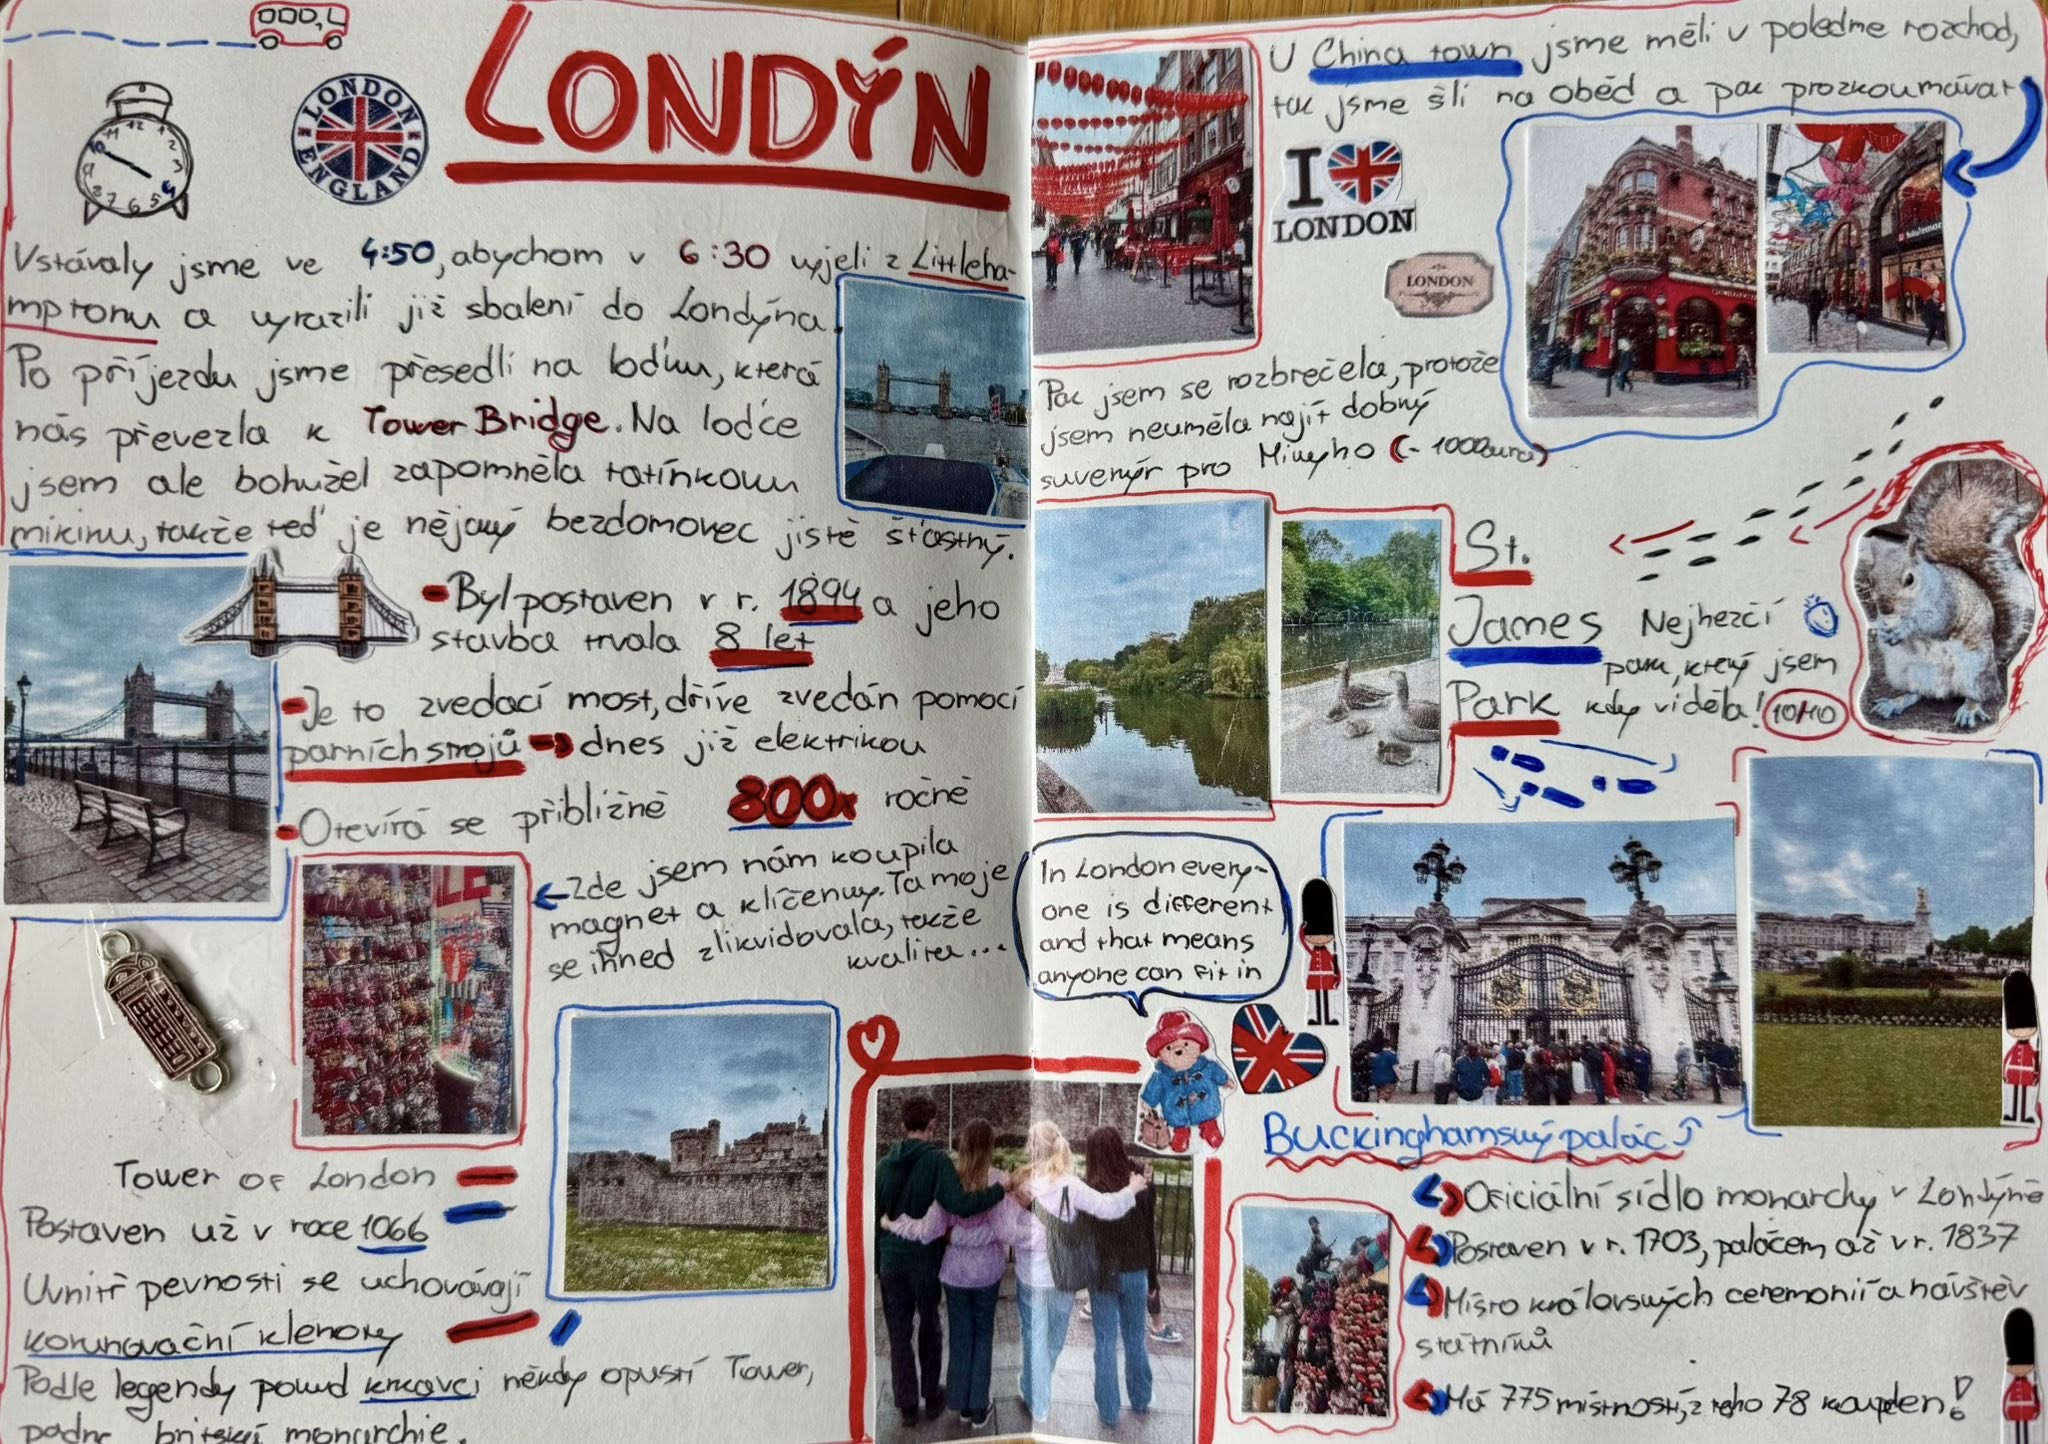 LONDÝN
LONDON
ENGLAND
Vstávaly jsme ve 4:50, abychom v 6:30 vyjeli z Littleha-
mptonu a vyrazili již sbalení do Londýna.
Po příjezdu jsme přesedli na loďku, která
nás převezla k Tower Bridge. Na loďce
jsem ale bohužel zapomněla tatínkovu
mikinu, takže teď je nějaký bezdomovec jistě šťastný.
Byl postaven v r. 1894 a jeho
stavba trvala 8 let
Je to zvedací most, dříve zvedán pomocí
parních strojů dnes již elektrikou
Otevírá se přibližně 800x ročně
Zde jsem nám koupila
magnet a klíčenky. Ta moje
se ihned zlikvidovala, takže
kvalita...
Tower of London
Postaven už v roce 1066
Uvnitř pevnosti se uchovávají
korunovační klenoty
Podle legendy pokud krkavci někdy opustí Tower,
padne britská monarchie.
U China town jsme měli v poledne rozchod,
tak jsme šli na oběd a pak prozkoumávat
I
LONDON
LONDON
Pak jsem se rozbrečela, protože
jsem neuměla najít dobrý
suvenýr pro Mikyho (-1000aura)
St.
James
Park
Nejhezčí
park, který jsem
kdy viděla! 10/10
In London every-
one is different
and that means
anyone can fit in
Buckinghamský palác
Oficiální sídlo monarchy v Londýně
Postaven v r. 1703, palácem až v r. 1837
Místo královských ceremonií a návštěv
státníků
Má 775 místností, z toho 78 koupelen!